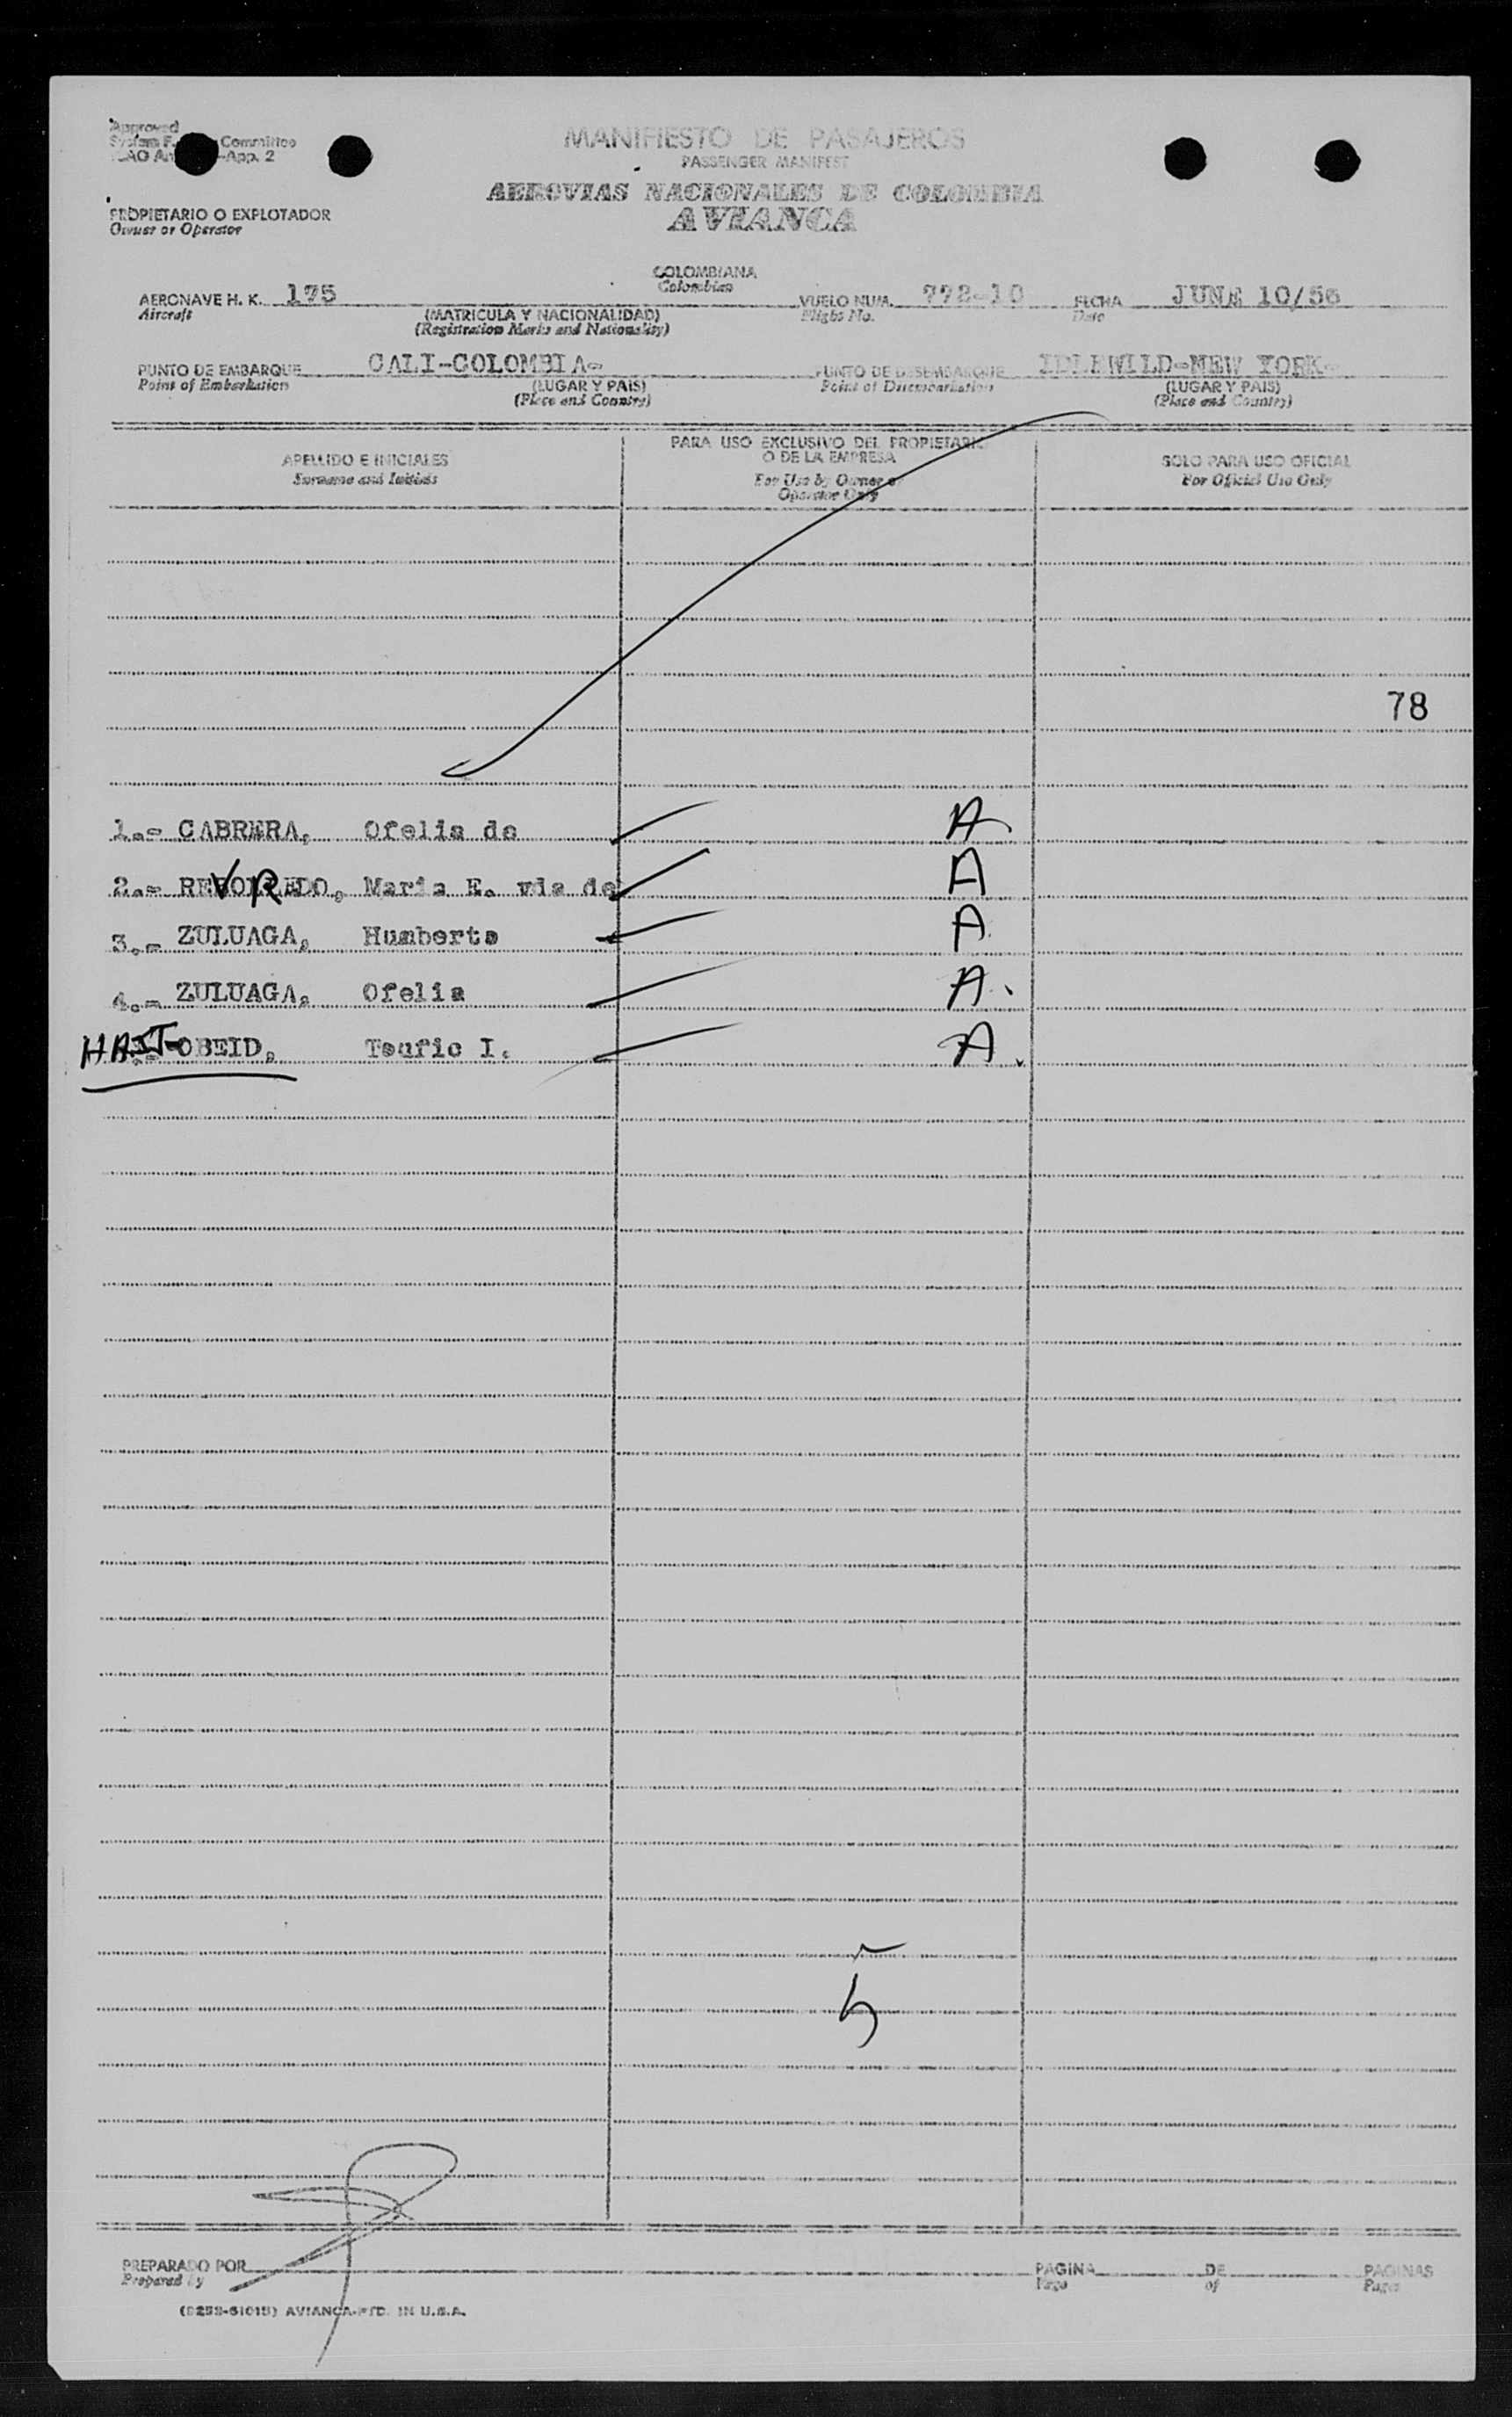 Approved
Committee
-App. 2
MANIFIESTO DE PASAJEROS
PASSENGER MANIFEST
AEROVIAS NACIONALES DE COLOMBIA
AVIANCA
PROPIETARIO O EXPLOTADOR
Owner or Operator
COLOMBIANA
Colombian
AERONAVE H. K. 175 VUELO NUM. 772-10 FECHA JUNE 10/56
Aircraft (MATRICULA Y NACIONALIDAD) Flight No. Date
(Registration Marks and Nationality)
PUNTO DE EMBARQUE CALI-COLOMBIA- PUNTO DE DESEMBARQUE IDLEWILD-NEW YORK-
Point of Embarkation (LUGAR Y PAIS) Point of Disembarkation (LUGAR Y PAIS)
(Place and Country) (Place and Country)
APELLIDO E INICIALES
Surname and Initials
PARA USO EXCLUSIVO DEL PROPIETARIO
O DE LA EMPRESA
For Use by Owner or
Operator Only
SOLO PARA USO OFICIAL
For Official Use Only
78
1.- CABRERA, Ofelia de A
2.- REVOREDO, Maria E. vda de A
3.- ZULUAGA, Humberto A
4.- ZULUAGA, Ofelia A.
HAIT-OBEID, Toufic I. A.
5
PREPARADO POR PAGINA DE PAGINAS
Prepared by Page of Pages
AVIANCA-PTD. IN U.S.A.